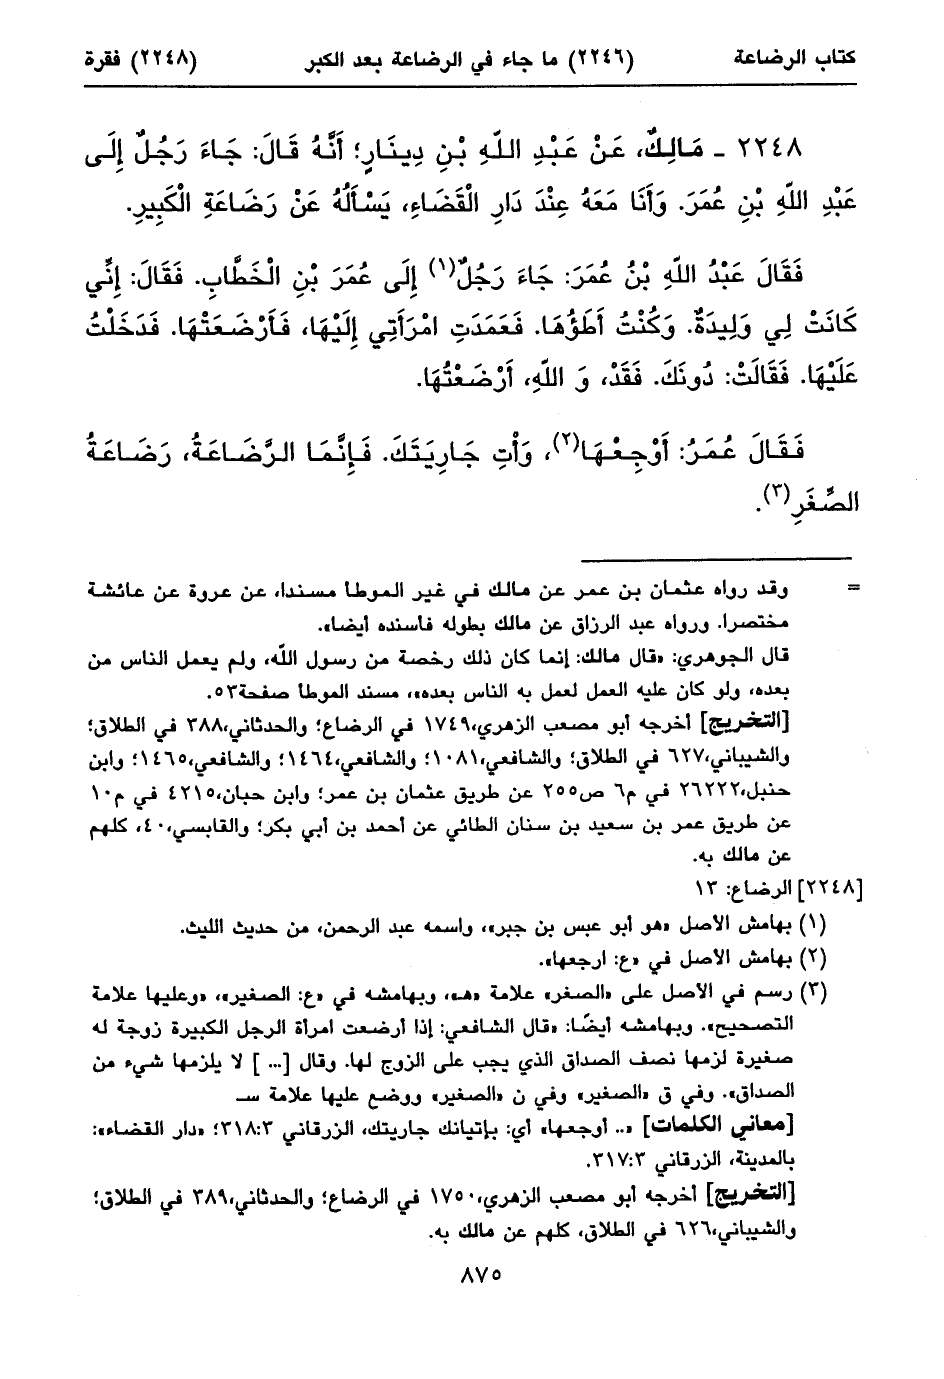 كتاب الرضاعة (٢٢٤٦) ما جاء في الرضاعة بعد الكبر (٢٢٤٨) فقرة
٢٢٤٨ - مَالِكٌ، عَنْ عَبْدِ اللّهِ بْنِ دِينَارٍ؛ أَنَّهُ قَالَ: جَاءَ رَجُلٌ إِلَى
عَبْدِ اللّهِ بْنِ عُمَرَ. وَأَنَا مَعَهُ عِنْدَ دَارِ الْقَضَاءِ، يَسْأَلُهُ عَنْ رَضَاعَةِ الْكَبِيرِ.
فَقَالَ عَبْدُ اللّهِ بْنُ عُمَرَ: جَاءَ رَجُلٌ(١) إِلَى عُمَرَ بْنِ الْخَطَّابِ. فَقَالَ: إِنِّي
كَانَتْ لِي وَلِيدَةٌ. وَكُنْتُ أَطَؤُهَا. فَعَمَدَتِ امْرَأَتِي إِلَيْهَا، فَأَرْضَعَتْهَا. فَدَخَلْتُ
عَلَيْهَا. فَقَالَتْ: دُونَكَ. فَقَدْ، وَ اللّهِ، أَرْضَعْتُهَا.
فَقَالَ عُمَرُ: أَوْجِعْهَا(٢)، وَأْتِ جَارِيَتَكَ. فَإِنَّمَا الرَّضَاعَةُ، رَضَاعَةُ
الصِّغَرِ(٣).
= وقد رواه عثمان بن عمر عن مالك في غير الموطا مسندا، عن عروة عن عائشة
مختصرا. ورواه عبد الرزاق عن مالك بطوله فأسنده أيضا».
قال الجوهري: «قال مالك: إنما كان ذلك رخصة من رسول اللّه، ولم يعمل الناس من
بعده، ولو كان عليه العمل لعمل به الناس بعده»، مسند الموطا صفحة٥٣.
[التخريج] أخرجه أبو مصعب الزهري،١٧٤٩ في الرضاع؛ والحدثاني،٣٨٨ في الطلاق؛
والشيباني،٦٢٧ في الطلاق؛ والشافعي،١٠٨١؛ والشافعي،١٤٦٤؛ والشافعي،١٤٦٥؛ وابن
حنبل،٢٦٢٢٢ في م٦ ص٢٥٥ عن طريق عثمان بن عمر؛ وابن حبان،٤٢١٥ في م١٠
عن طريق عمر بن سعيد بن سنان الطائي عن أحمد بن أبي بكر؛ والقابسي،٤٠، كلهم
عن مالك به.
[٢٢٤٨] الرضاع: ١٣
(١) بهامش الأصل «هو أبو عبس بن جبر»، واسمه عبد الرحمن، من حديث الليث.
(٢) بهامش الأصل في «ع: ارجعها».
(٣) رسم في الأصل على «الصغر» علامة «هـ»، وبهامشه في «ع: الصغير»، «وعليها علامة
التصحيح». وبهامشه أيضًا: «قال الشافعي: إذا أرضعت امرأة الرجل الكبيرة زوجة له
صغيرة لزمها نصف الصداق الذي يجب على الزوج لها. وقال [... ] لا يلزمها شيء من
الصداق». وفي ق «الصغير» وفي ن «الصغير» ووضع عليها علامة سـ
[معاني الكلمات] «.. أوجعها» أي: بإتيانك جاريتك، الزرقاني ٣١٨:٣؛ «دار القضاء»:
بالمدينة، الزرقاني ٣١٧:٣.
[التخريج] أخرجه أبو مصعب الزهري،١٧٥٠ في الرضاع؛ والحدثاني،٣٨٩ في الطلاق؛
والشيباني،٦٢٦ في الطلاق، كلهم عن مالك به.
٨٧٥